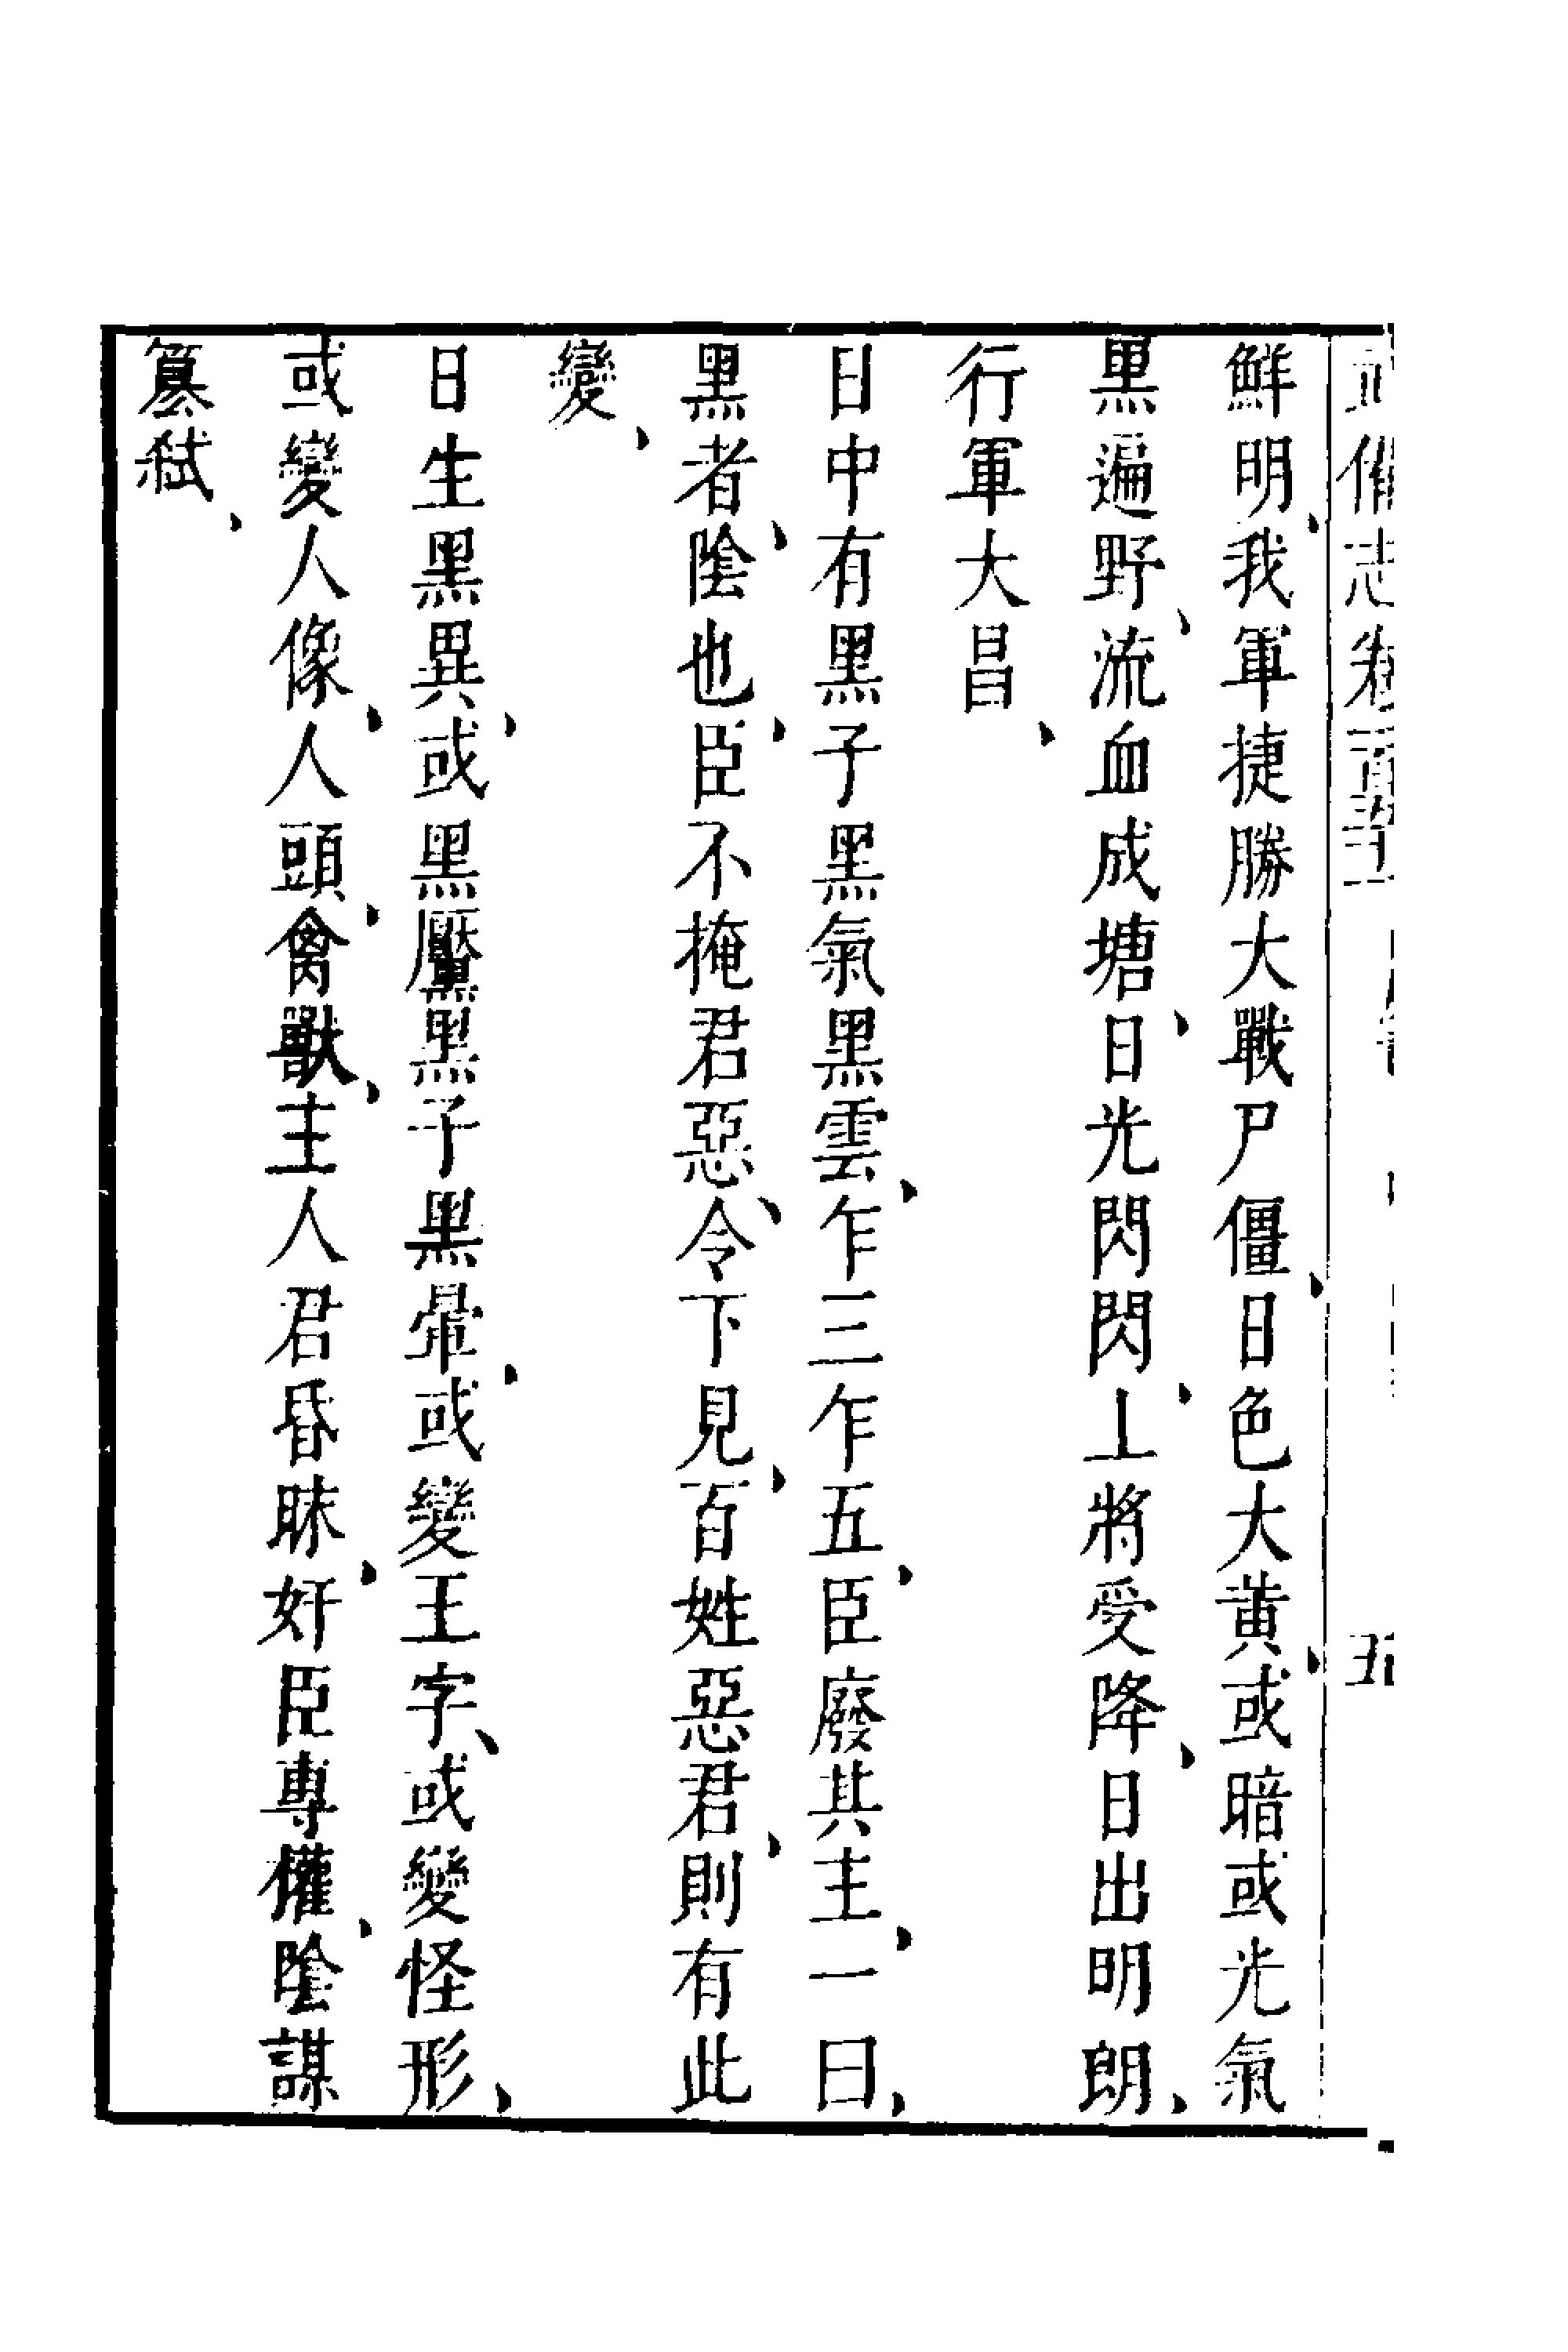 鮮明、我軍捷勝大戰尸僵、日色大黃、或暗或光氣
黑遍野、流血成塘、日光閃閃、上將受降、日出明朗、
行軍大昌、
日中有黑子黑氣黑雲、乍三乍五、臣廢其主、一曰、
黑者、陰也、臣不掩君惡、令下見、百姓惡君、則有此
變、
日生黑異、或黑黶黑子黑暈、或變王字、或變怪形、
或變人像、人頭、禽獸、主人君昏昧、奸臣專權、陰謀
篡弒、
武備志卷
五